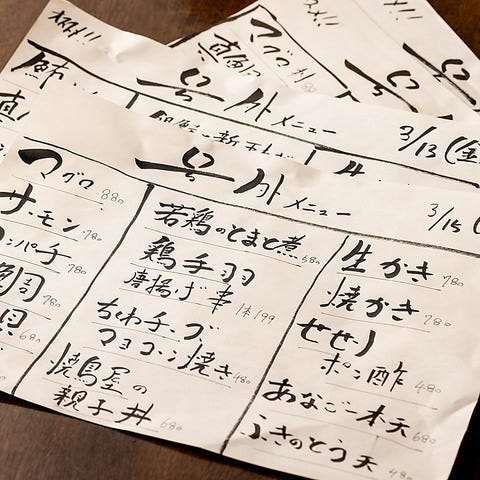 オススメ!!
マグロ
真鯛
号外メニュー
3/13(金
号外メニュー
3/15(
マグロ 880
サーモン 780
カンパチ 780
680
若鶏のとまと煮 680
鶏手羽
唐揚げ串 1本199
ちくわチーズ
マヨコーン焼き 480
焼鳥屋の
親子丼 680
生かき 780
焼かき 780
せせり
ポン酢 480
あなご一本天 680
ふきのとう天 480